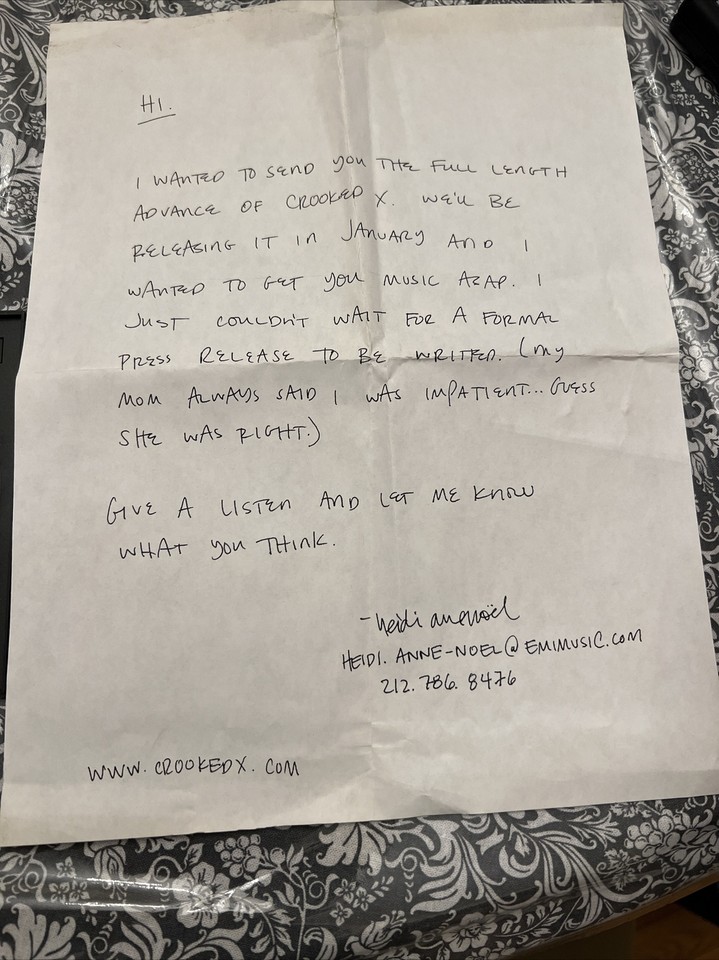 HI.
I WANTED TO SEND YOU THE FULL LENGTH
ADVANCE OF CROOKED X. WE'LL BE
RELEASING IT IN JANUARY AND I
WANTED TO GET YOU MUSIC ASAP. I
JUST COULDN'T WAIT FOR A FORMAL
PRESS RELEASE TO BE WRITTED. (MY
MOM ALWAYS SAID I WAS IMPATIENT... GUESS
SHE WAS RIGHT.)
GIVE A LISTEN AND LET ME KNOW
WHAT YOU THINK.
-heidi annenoël
HEIDI.ANNE-NOEL@EMIMUSIC.COM
212.786.8476
WWW.CROOKEDX.COM